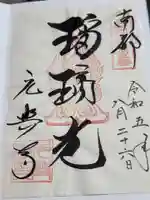 南都
令和五年
八月二十六日
瑠璃光
元興寺